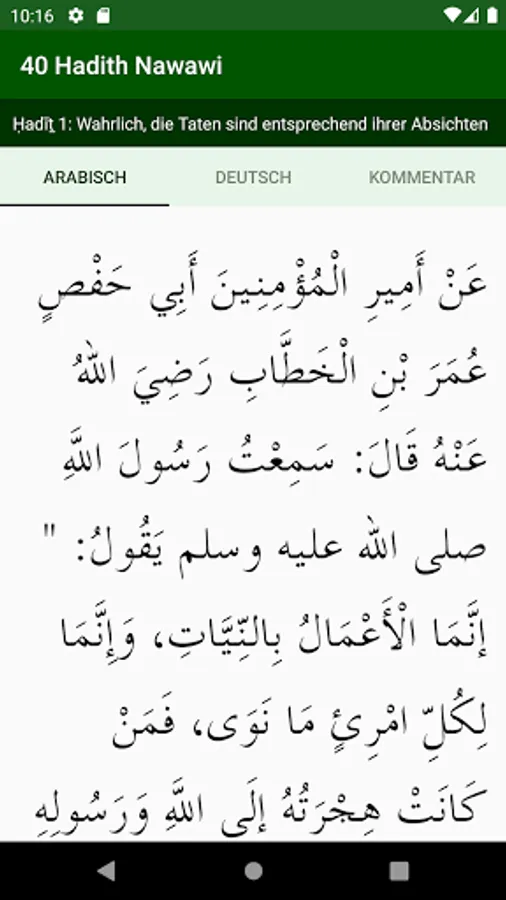 10:16
40 Hadith Nawawi
Ḥadīṯ 1: Wahrlich, die Taten sind entsprechend ihrer Absichten
ARABISCH DEUTSCH KOMMENTAR
عَنْ أَمِيرِ الْمُؤْمِنِينَ أَبِي حَفْصٍ
عُمَرَ بْنِ الْخَطَّابِ رَضِيَ اللهُ
عَنْهُ قَالَ: سَمِعْتُ رَسُولَ اللَّهِ
صلى الله عليه وسلم يَقُولُ: "
إنَّمَا الْأَعْمَالُ بِالنِّيَّاتِ، وَإِنَّمَا
لِكُلِّ امْرِئٍ مَا نَوَى، فَمَنْ
كَانَتْ هِجْرَتُهُ إلَى اللَّهِ وَرَسُولِهِ